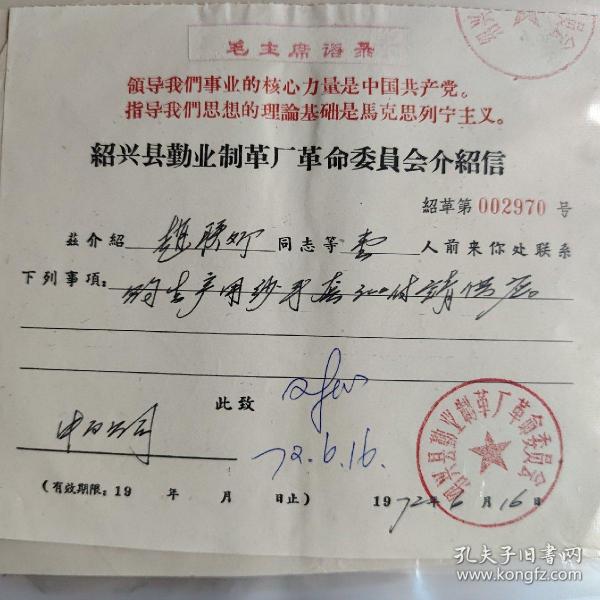 毛主席语录
領导我們事业的核心力量是中国共产党。
指导我們思想的理論基础是馬克思列宁主义。
紹兴县勤业制革厂革命委員会介紹信
紹革第 002970 号
茲介紹 同志等 壹 人前来你处联系
下列事項： 购生产用纱手套 付請供应。
此致
中百公司
72.6.16.
(有效期限：19 年 月 日止)
1972年6月16日
紹兴县勤业制革厂革命委員会
孔夫子旧书网
www.kongfz.com